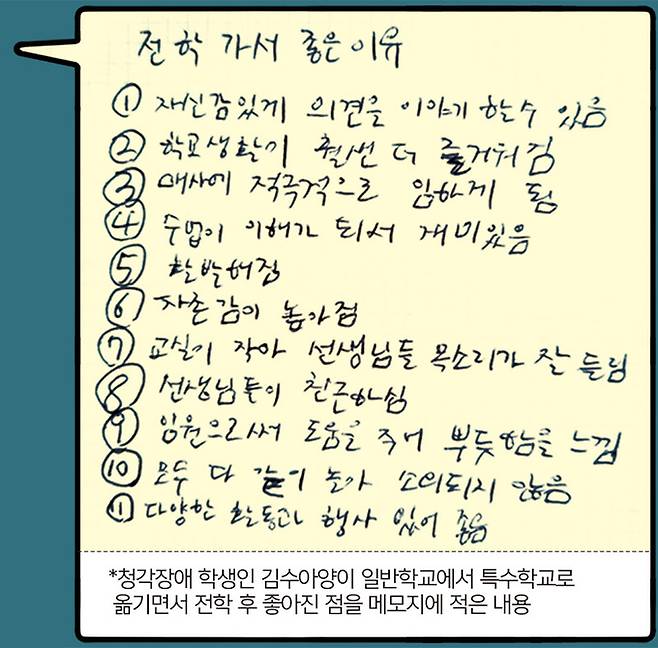 전학 가서 좋은 이유
① 자신감있게 의견을 이야기 할수 있음
② 학교생활이 훨씬 더 즐거워짐
③ 매사에 적극적으로 임하게 됨
④ 수업이 이해가 되서 재미있음
⑤ 활발해짐
⑥ 자존감이 높아짐
⑦ 교실이 작아 선생님들 목소리가 잘 들림
⑧ 선생님들이 친근하심
⑨ 임원으로써 도움을 주어 뿌듯함을 느낌
⑩ 모두 다 같이 놀아 소외되지 않음
⑪ 다양한 활동과 행사 있어 좋음
*청각장애 학생인 김수아양이 일반학교에서 특수학교로
옮기면서 전학 후 좋아진 점을 메모지에 적은 내용